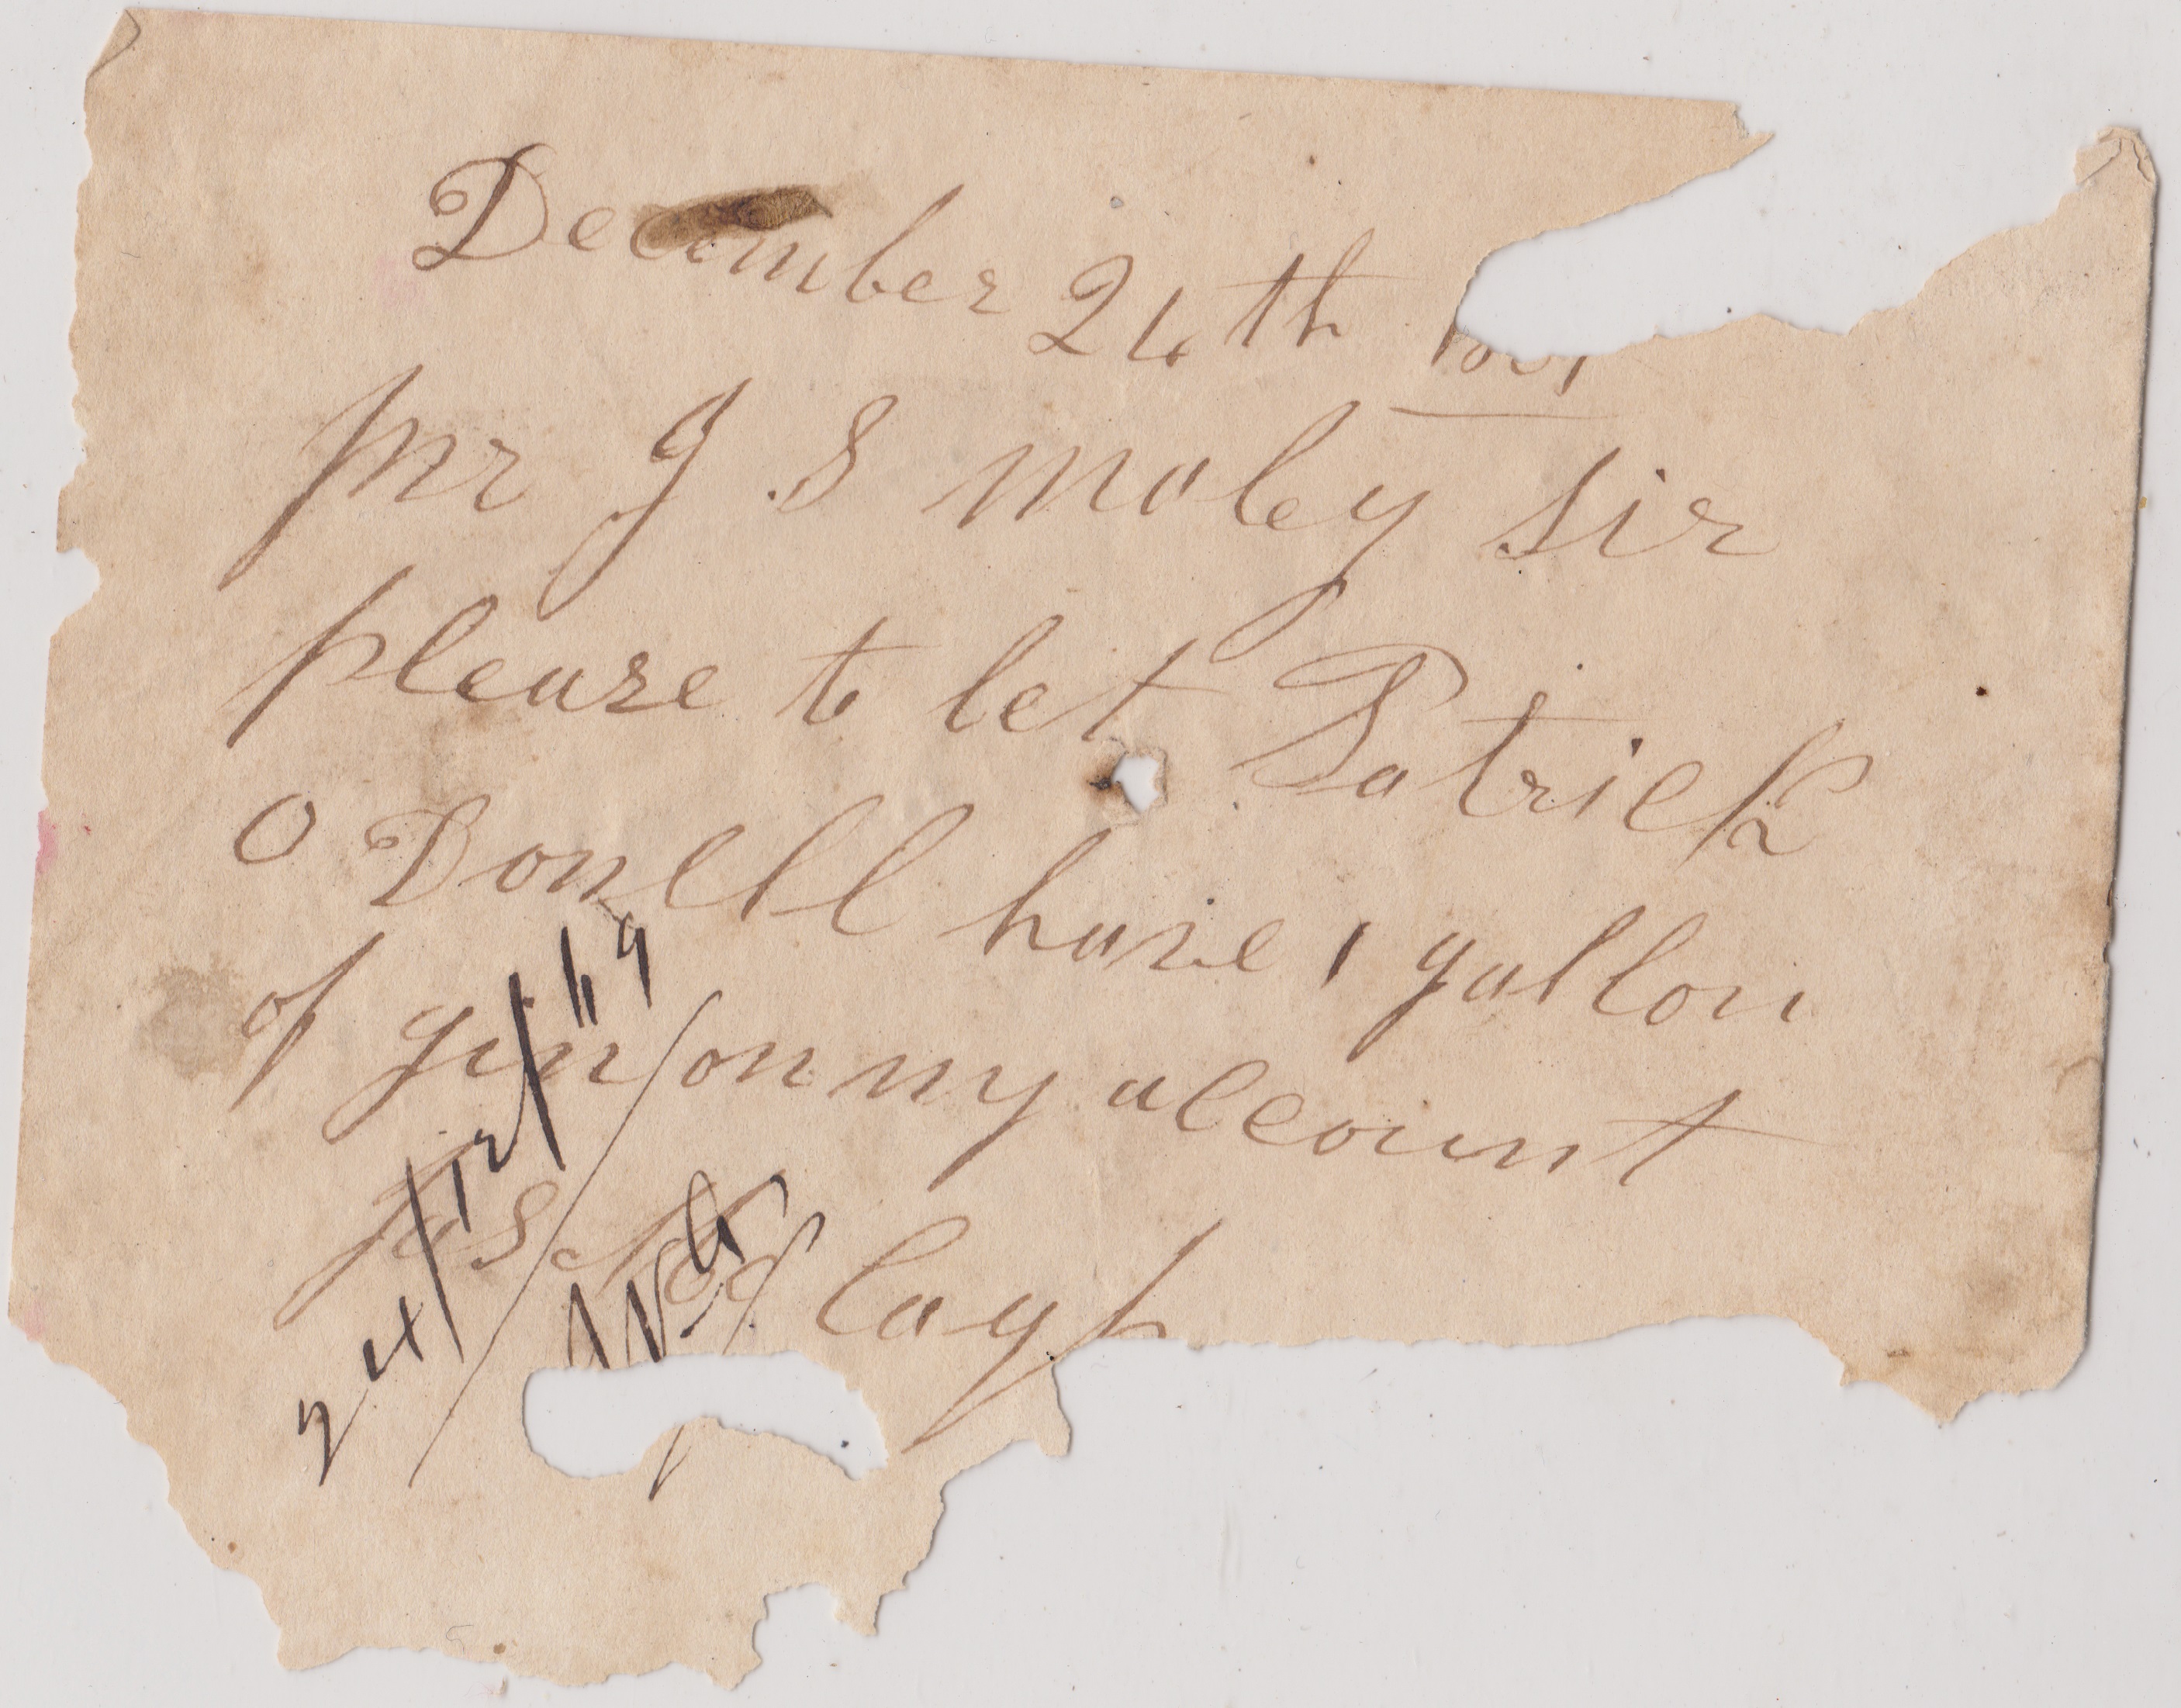 December 24th
Mr J S Maley Sir
please to let Patrick
O Donell have 1 gallon
of gin on my account
Jas
24/12/69